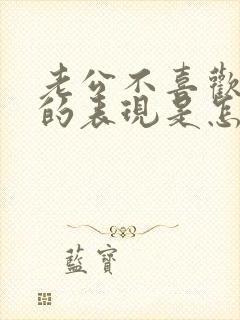 老公不喜歡
的表現是怎
藍寶